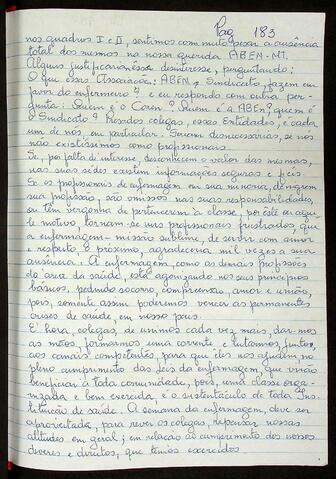 Pag 183
nos quadros I e II, sentimos com muito pesar a ausência
total dos mesmos na nossa querida ABEn-MT.
Alguns justificam êsse desinteresse, perguntando:
O que essas Associação: ABEN, Sindicato, fazem em
favor do enfermeiro? e eu respondo com outra per-
gunta: Quem é o Coren? Quem é a ABEn?, quem é
o Sindicato? Prezados colegas, essas Entidades, é cada
um de nós, em particular. Seriam desnecessárias, se nós
não existíssemos como profissionais.
Se, por falta de interesse, desconhecem o valor das mesmas,
nas suas sedes existem informações seguras e fiéis.
Se os profissionais de enfermagem em sua minoria, denigrem
sua profissão, são omissos nas suas responsabilidades,
ou têm vergonha de pertencerem à classe, por êste ou aque-
le motivo, tornam-se uns profissionais frustrados que
a enfermagem - missão sublime, de servir com amor
e respeito, o próximo, agradeceria mil vezes a sua
ausência. A enfermagem, como as demais profissões
da área da saúde, está agonizando nos seus princípios
básicos, pedindo socorro, compreensão, amor e união,
pois, somente assim poderemos vencer as permanentes
crises de saúde, em nosso país.
É hora, colegas, de unirmos cada vez mais, dar-mos
as mãos, formarmos uma corrente e lutarmos juntos,
aos canais competentes, para que eles nos ajudem no
pleno cumprimento das leis da enfermagem, que virão
beneficiar a toda comunidade, pois, uma classe orga-
nizada e bem exercida, é o sustentáculo de toda Ins-
tituição de saúde. A semana da enfermagem, deve ser
aproveitada, para rever os colegas, repensar nossas
atitudes em geral; em relação ao cumprimento dos nossos
deveres e direitos, que temos exercidos.